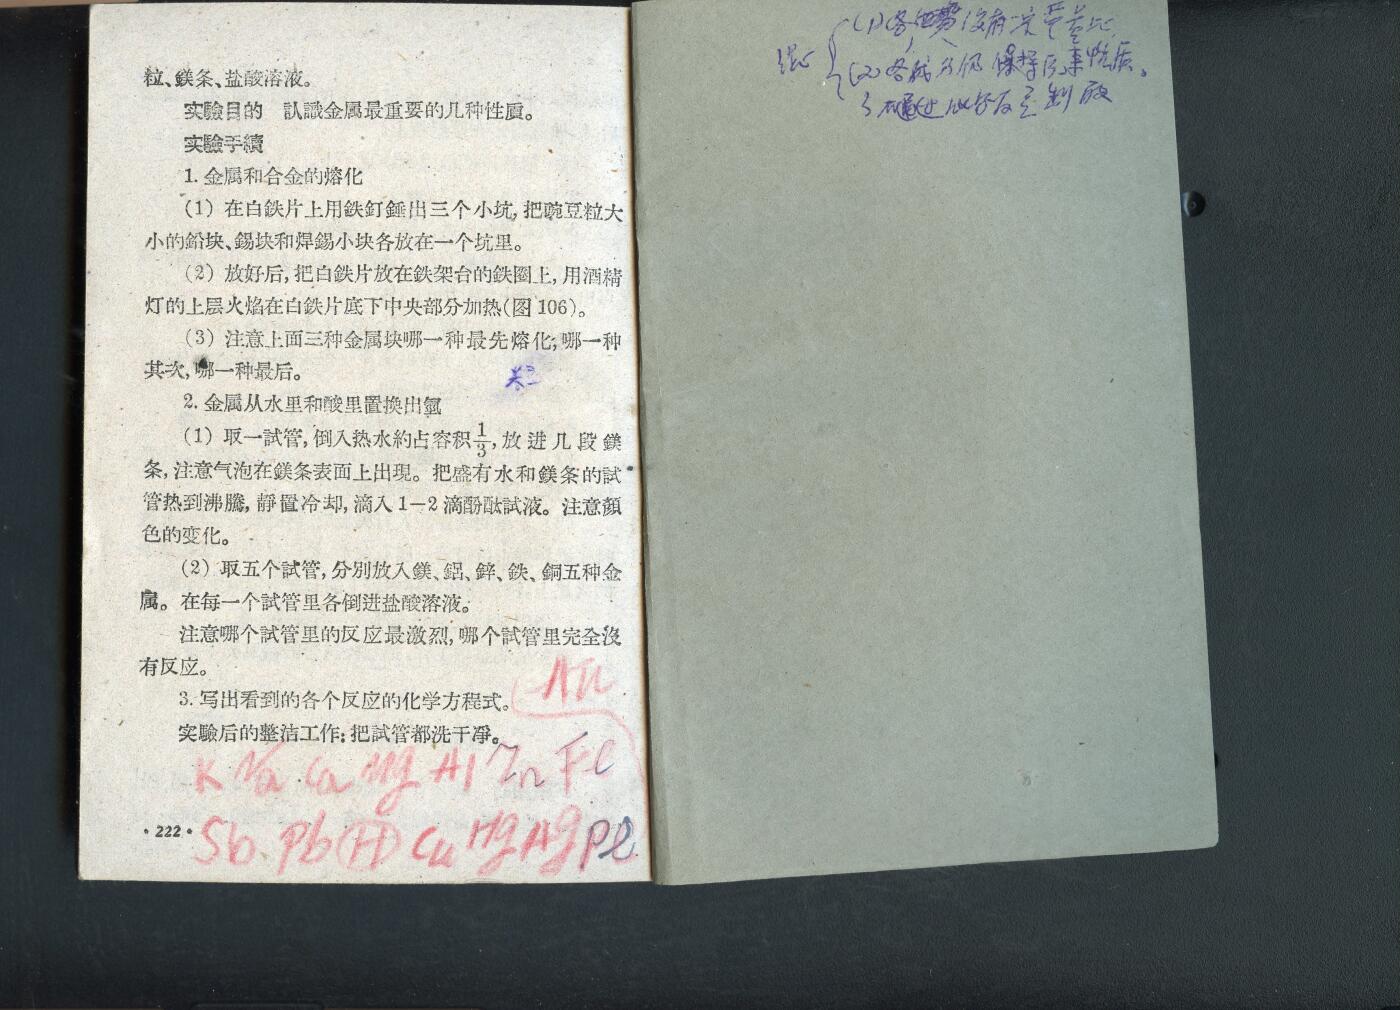 粒、鎂条、盐酸溶液。
实驗目的　訊識金属最重要的几种性质。
实驗手續
1. 金属和合金的熔化
(1) 在白鉄片上用鉄釘錘出三个小坑,把豌豆粒大
小的鉛块、錫块和焊錫小块各放在一个坑里。
(2) 放好后,把白鉄片放在鉄架台的鉄圈上,用酒精
灯的上层火焰在白鉄片底下中央部分加热(图 106)。
(3) 注意上面三种金属块哪一种最先熔化;哪一种
其次,哪一种最后。
2. 金属从水里和酸里置換出氫
(1) 取一試管,倒入热水約占容积1/3,放进几段鎂
条,注意气泡在鎂条表面上出現。把盛有水和鎂条的試
管热到沸騰,靜置冷却,滴入 1—2 滴酚酞試液。注意顏
色的变化。
(2) 取五个試管,分別放入鎂、鋁、鋅、鉄、銅五种金
属。在每一个試管里各倒进盐酸溶液。
注意哪个試管里的反应最激烈,哪个試管里完全沒
有反应。
3. 写出看到的各个反应的化学方程式。
实驗后的整洁工作:把試管都洗干凈。
Au
K Na Ca Mg Al Zn Fe
Sb Pb (H) Cu Hg Ag Pt
• 222 •
(1) 各
(2) 各成分仍保持原来性质。